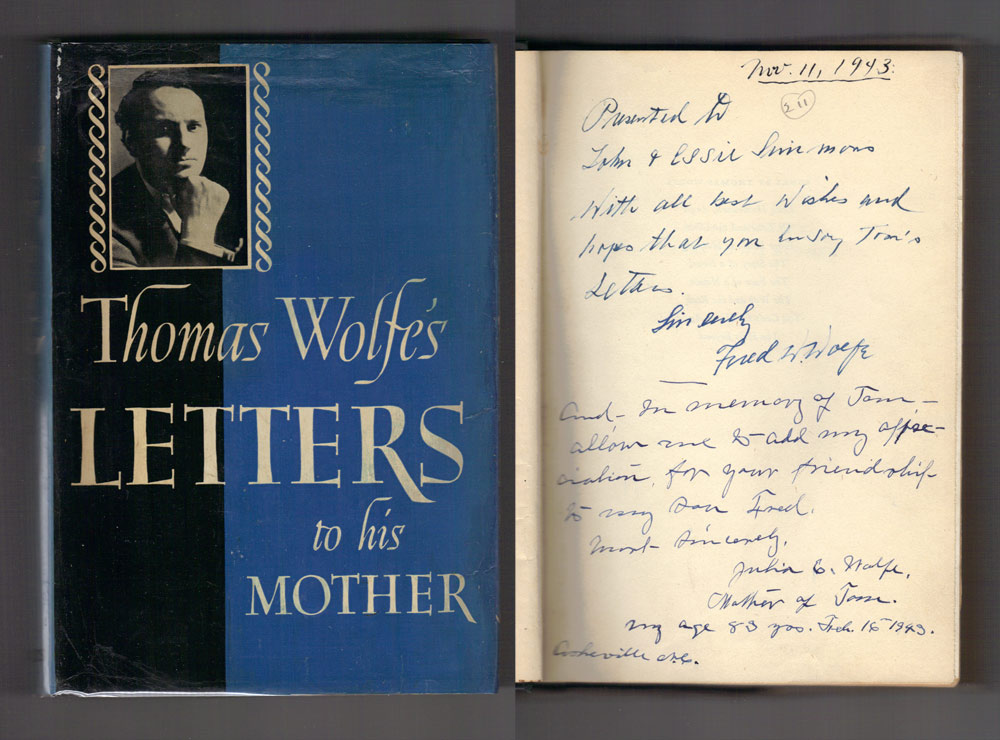 Thomas Wolfe's
LETTERS
to his
MOTHER
Nov. 11, 1943.
211
Presented to
John & Essie Simmons
With all best wishes and
hopes that you Enjoy Tom's
Letters.
Sincerely
Fred W. Wolfe
and - In memory of Tom -
allow me to add my appre-
ciation, for your friendship
to my son Fred.
Most Sincerely,
Julia E. Wolfe,
Mother of Tom.
my age 83 yrs. Feb. 16 1943.
Asheville N.C.